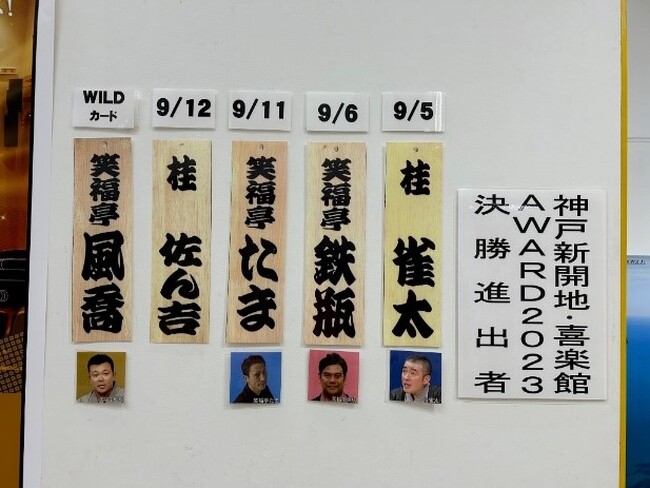 神戸新開地・喜楽館
AWARD2023
決勝進出者
9/5
桂 雀太
9/6
笑福亭 鉄瓶
9/11
笑福亭 たま
9/12
桂 佐ん吉
WILD
カード
笑福亭 風喬